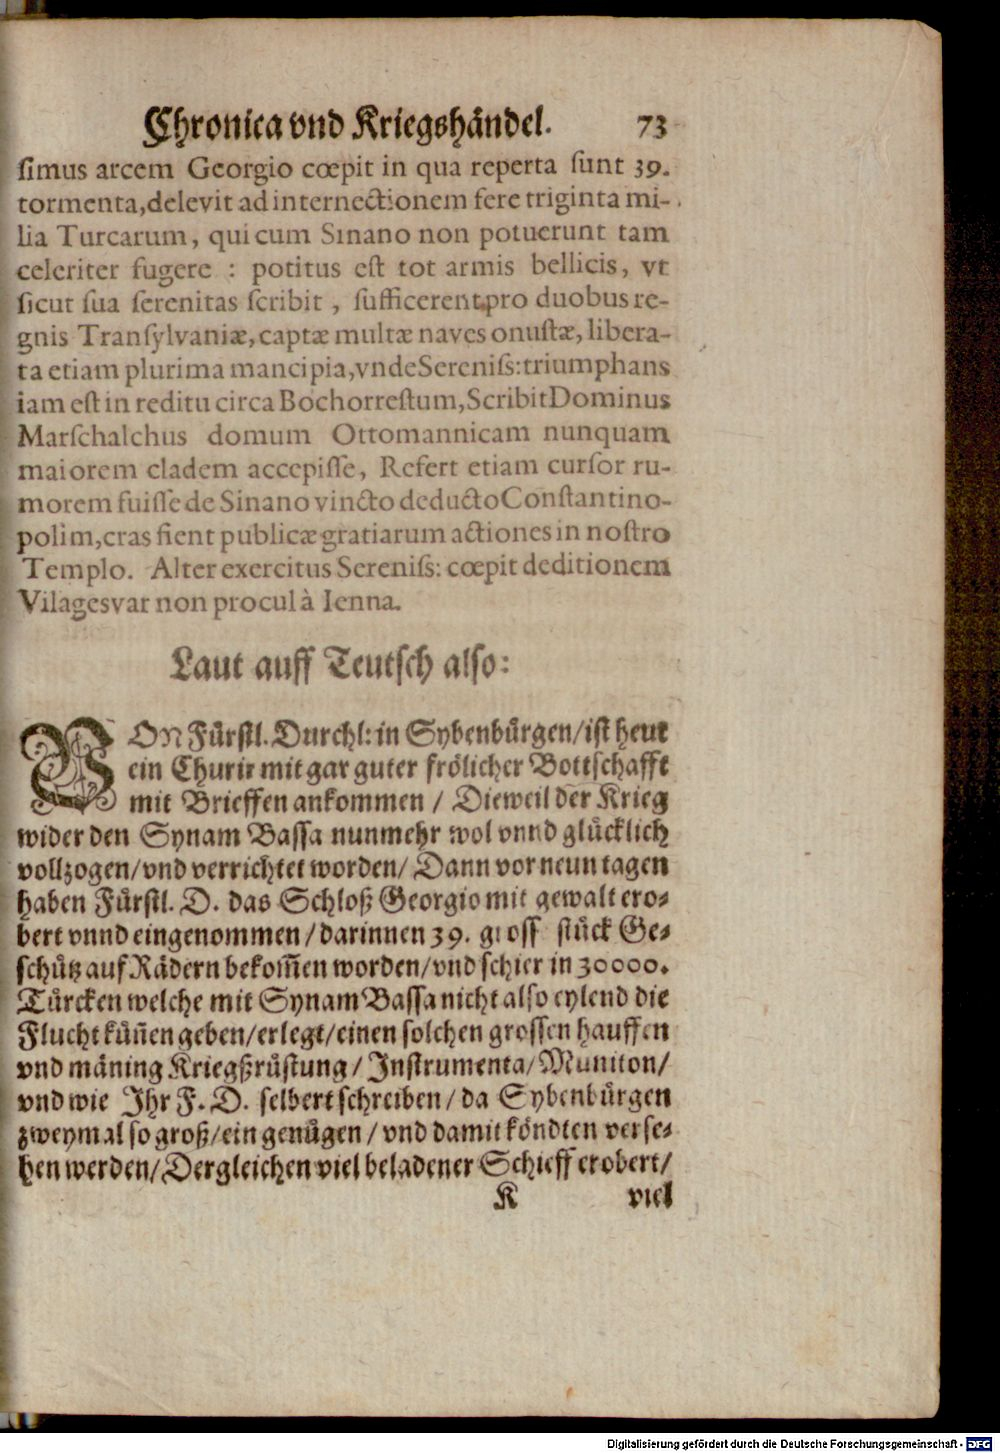 Chronica vnd Kriegshändel. 73
simus arcem Georgio cœpit in qua reperta sunt 39.
tormenta, delevit ad internectionem fere triginta mi-
lia Turcarum, qui cum Sinano non potuerunt tam
celeriter fugere : potitus est tot armis bellicis, vt
sicut sua serenitas scribit, sufficerent pro duobus re-
gnis Transylvaniæ, captæ multæ naves onustæ, libera-
ta etiam plurima mancipia, vnde Sereniss: triumphans
iam est in reditu circa Bochorrestum, Scribit Dominus
Marschalchus domum Ottomannicam nunquam
maiorem cladem accepisse, Refert etiam cursor ru-
morem fuisse de Sinano vincto deducto Constantino-
polim, cras fient publicæ gratiarum actiones in nostro
Templo. Alter exercitus Sereniss: cœpit deditionem
Vilagesvar non procul à Ienna.
Laut auff Teutsch also:
VON Fürstl. Durchl: in Sybenbürgen/ist heut
ein Churir mit gar guter frölicher Bottschafft
mit Brieffen ankommen / Dieweil der Krieg
wider den Synam Bassa nunmehr wol vnnd glücklich
vollzogen/vnd verrichtet worden/ Dann vor neun tagen
haben Fürstl. D. das Schloß Georgio mit gewalt ero-
bert vnnd eingenommen / darinnen 39. gross stück Ge-
schütz auf Rädern bekom̄en worden/vnd schier in 30000.
Türcken welche mit Synam Bassa nicht also eylend die
Flucht kün̄en geben/erlegt/einen solchen grossen hauffen
vnd mäning Kriegßrüstung / Instrumenta/ Muniton/
vnd wie Ihr F. D. selbert schreiben / da Sybenbürgen
zweymal so groß/ein genügen / vnd damit köndten verse-
hen werden/ Dergleichen viel beladener Schieff erobert/
K viel
Digitalisierung gefördert durch die Deutsche Forschungsgemeinschaft - DFG